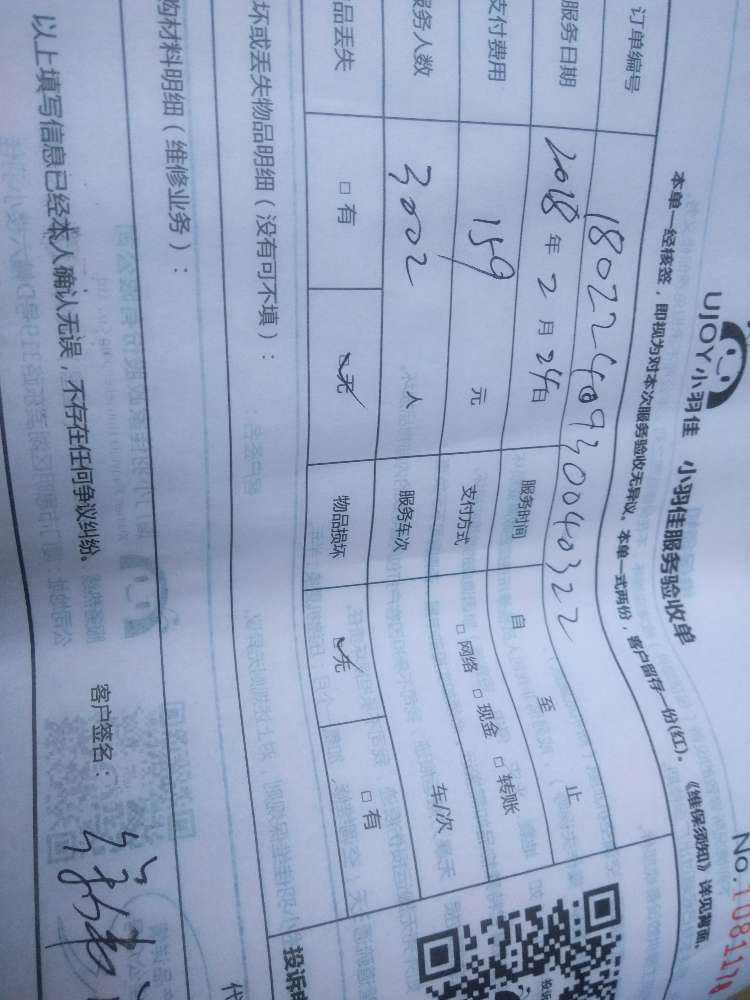 UJOY小羽佳 小羽佳服务验收单
No.:1081117
本单一经核签，即视为对本次服务验收无异议。本单一式两份，客户留存一份(红)。 《维保须知》详见背面。
订单编号 1802240930040322
服务日期 2018 年 2 月 24 日 服务时间 自 至 止
支付费用 159 元 支付方式 □ 网络 □ 现金 □ 转账
服务人数 3002 人 服务车次 车/次
品丢失 □ 有 □ 无 物品损坏 □ 无 □ 有
坏或丢失物品明细（没有可不填）：
购材料明细（维修业务）：
投诉
代
以上填写信息已经本人确认无误，不存在任何争议纠纷。 客户签名：